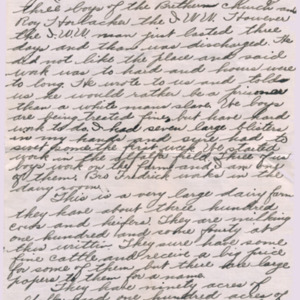 three boys of the Bethany Church and
Roy the I.W.W. However
the I.W.W. man just lasted three
days and then was discharged. He
did not like the place and said
work was to hard and hours
to long. He wrote to us and told
us he would rather be a prisoner
than a white mans slave. We boys
are being treated fine, but have hard
work to do. I had seven large blisters
in my hands once since had to
the first week. We started
work in the alfalfa field. Three of us
boys work on the farm and I am one
of them. Bro Fredrick works in the
dairy room.
This is a very large dairy farm
they have about three hundred
cows and heifers. They are milking
one hundred and some fourty at
this writing. They sure have some
fine cattle and receive a big price
for some of them. But they use large
papers to them for a name.
They have ninety acres of
and one hundred acres of